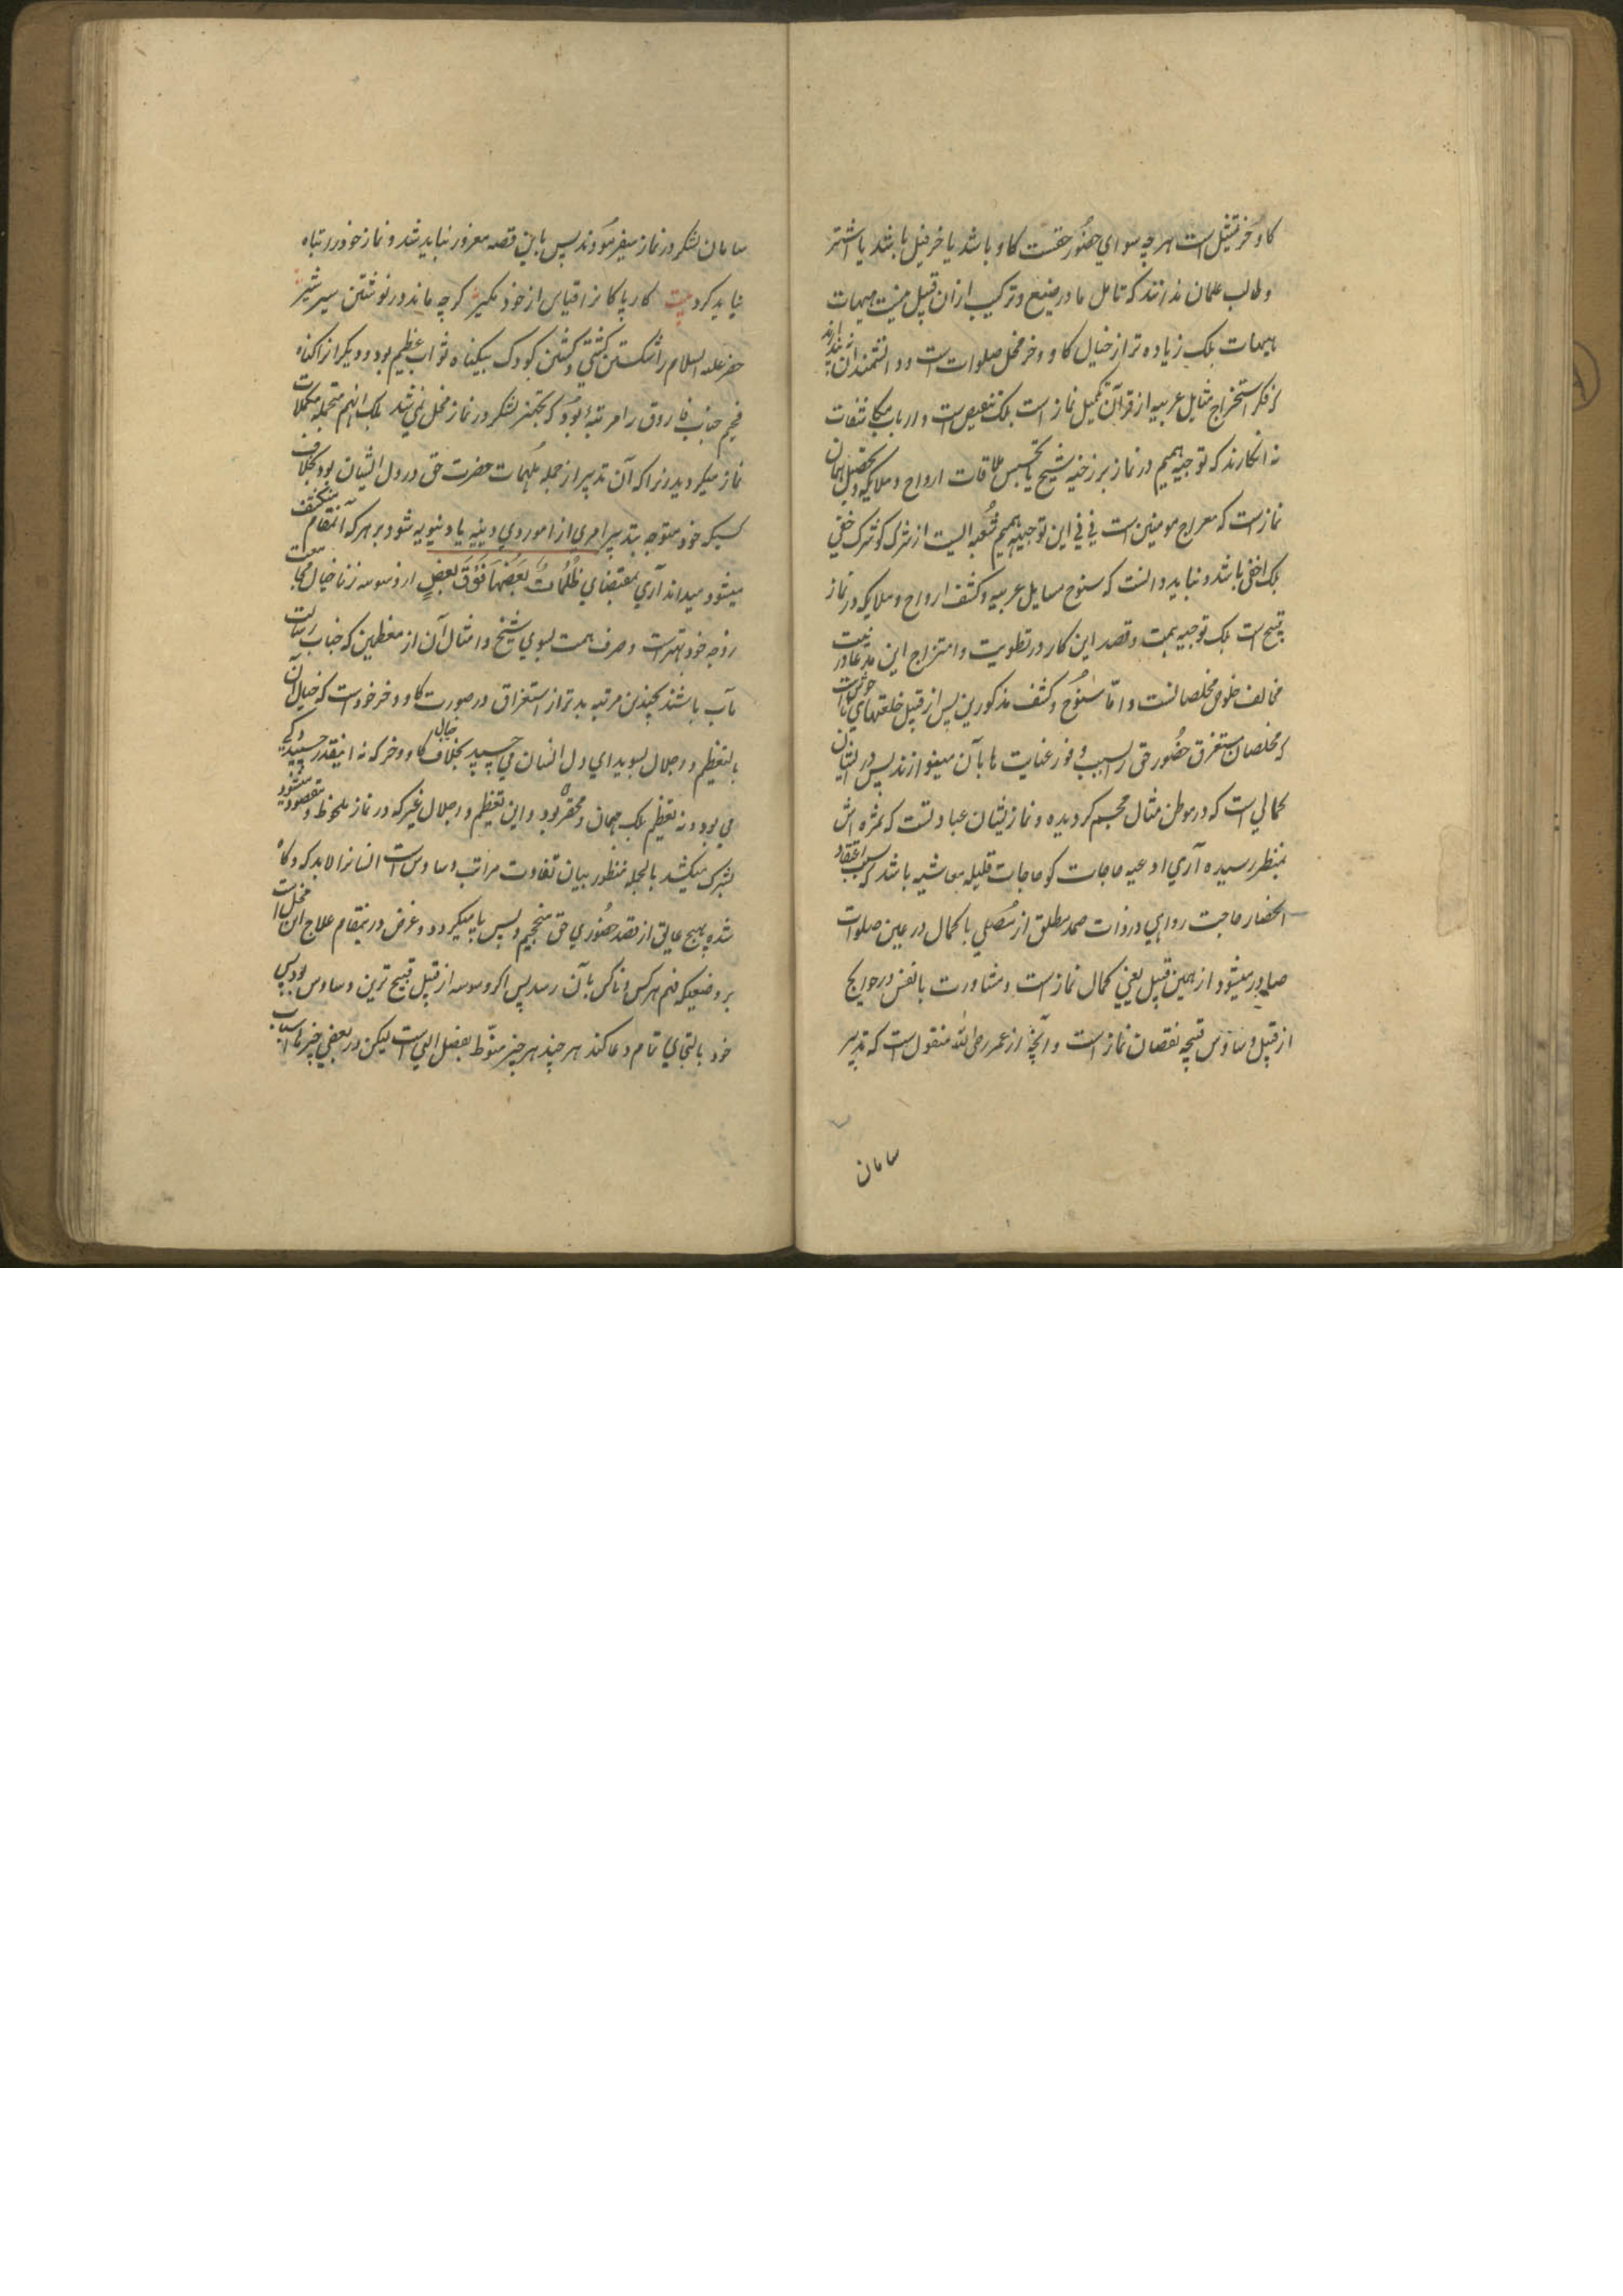 گاو خر تمثیل است هر چه سوای حضور حقست گاو باشد یا خر فیل باشد یا اشتر
و طالب علمان ندانند که تامل ما در صیغ و ترکیب ازان قبیل نیست هیهات
هیهات بلکه زیاده تر از خیال گاو و خر مخل صلوات است و دانشمندان نه پندارند
که فکر استخراج مثایل عربیه از قرآن تکمیل نماز است بلکه تنقیص است و ارباب مکاشفات
نه انکارند که توجیه همم در نماز برزخیه شیخ یا تجسس ملاقات ارواح و ملایکه و تحصیل همان
نماز است که معراج مومنین است نی نی این توجیه همم شعبه ایست از شرک گو شرک خفی
بلکه اخفی باشد و نباید دانست که سنوح مسایل عربیه و کشف ارواح و ملایکه در نماز
قبیح است بلکه توجیه همت و قصد این کار در تطویت و امتزاج این مدعا در نیت
مخالف خلوص مخلصانست و اما سنوح و کشف مذکورین پس از قبیل خلعتهای
که مخلصان مستغرق حضور حق را بسبب وفور عنایت ها بآن مینوازند پس در ایشان
کمالی است که در موطن مثال مجسم گردیده و نماز ایشان عبادتست که ثمره اش
بمنظر رسیده آری ادعیه حاجات گو حاجات قلیله معاشیه باشد که بسبب اعتقاد
انحضار حاجت روایی در ذات صمد مطلق از مصلی با کمال در عین صلوات
صادر میشود از همین قبیل یعنی کمال نماز است و مشاورت با نفس در حوایج
از قبیل وساوس قبیحه نقصان نماز است و آنچه از عمر رضی الله منقول است که تدبیر
سامان
سامان لشکر در نماز میفرمودند پس باین قصه مغرور نباید شد و نماز خود را تباه
نباید کرد بیت کار پاکانرا قیاس از خود مگیر گرچه ماند در نوشتن سیر شیر
خضر علیه السلام را شکستن کشتی و کشتن کودک بیگناه ثواب عظیم بود و دیگرانرا گناه
فخیم جناب فاروق را مرتبه بود که تجهیز لشکر در نماز مخل نمی شد بلکه آنهم متجمله مکملات
نماز میگردید زیرا که آن تدبیر از جمله ملهمات حضرت حق در دل ایشان بود بخلاف
کسیکه خود متوجه بتدبیر امری از امور دینیه یا دنیویه شود بر هر که آنمقام منکشف
میشود میداند آری بمقتضای ظُلُماتٌ بَعضُهَا فَوقَ بَعضٍ از وسوسه زنا خیال مجامعت
زوجه خود بهتر است و صرف همت بسوی شیخ و امثال آن از معظمین که جناب رسالت
مآب باشند بچندین مرتبه بدتر از استغراق در صورت گاو و خر خود است که خیال آن
با تعظیم و اجلال بسویدای دل انسان می چسپد بخلاف خیال گاو و خر که نه آنقدر چسپیدگی
می بود و نه تعظیم بلکه مهان و محقر بود و این تعظیم و اجلال غیر که در نماز ملحوظ و مقصود میشود
بشرک میکشد بالجمله منظور بیان تفاوت مراتب وساوس است انسانرا لابد که آگاه
شده بهیچ عایق از قصد حضوری حق منحجیم و پس پا نمیگردد و غرض در ینمقام علاج این مخل است
بر وضعیکه فهم هر کس و ناکس بآن رسد پس اگر وسوسه از قبیل قبیح ترین وساوس بود پس
خود بالتجای تمام دعا کند هر چند هر چیز منوط بفضل الهی است لیکن در بعضی چیزها اسباب